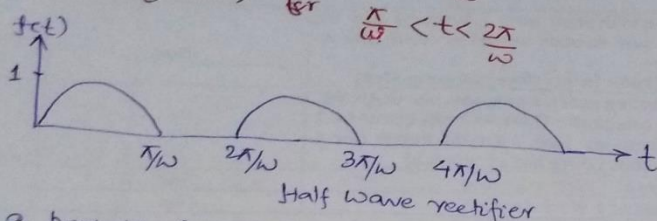 for π/ω < t < 2π/ω
f(t)
1
π/ω 2π/ω 3π/ω 4π/ω t
Half wave rectifier